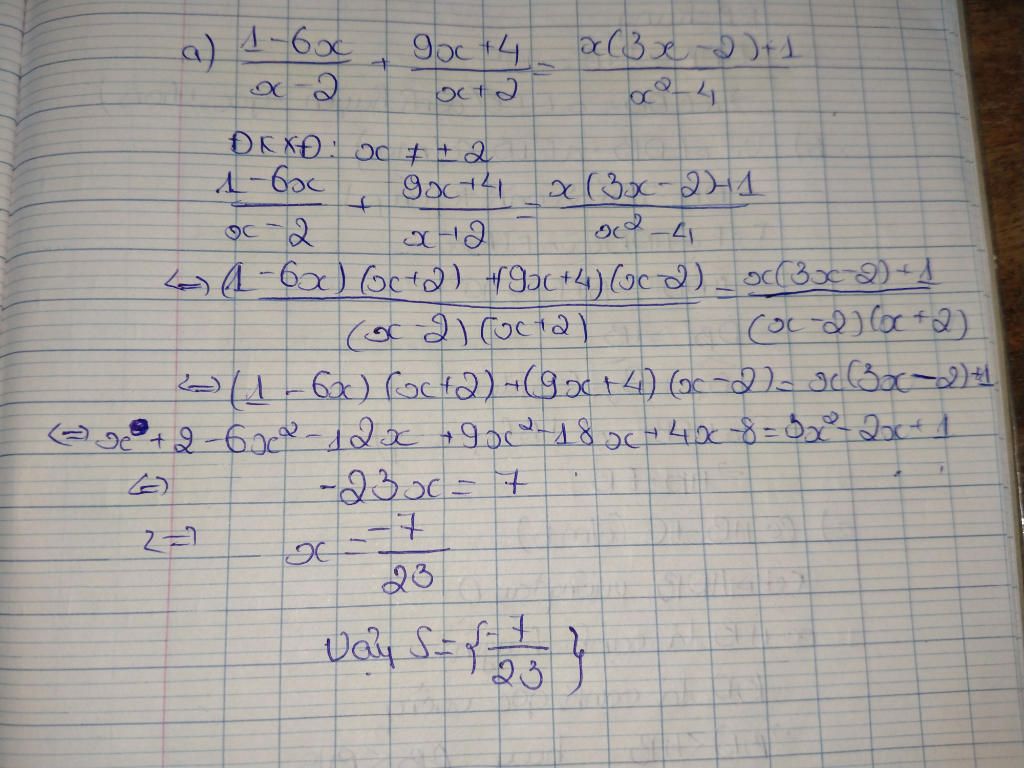 a) (1-6x)/(x-2) + (9x+4)/(x+2) = (x(3x-2)+1)/(x²-4)
ĐKXĐ: x ≠ ±2
(1-6x)/(x-2) + (9x+4)/(x+2) = (x(3x-2)+1)/(x²-4)
⇔ ((1-6x)(x+2)+(9x+4)(x-2))/((x-2)(x+2)) = (x(3x-2)+1)/((x-2)(x+2))
⇔ (1-6x)(x+2)+(9x+4)(x-2)=x(3x-2)+1
⇔ x+2-6x²-12x+9x²-18x+4x-8=3x²-2x+1
⇔ -23x=7
⇔ x=-7/23
Vậy S={-7/23}